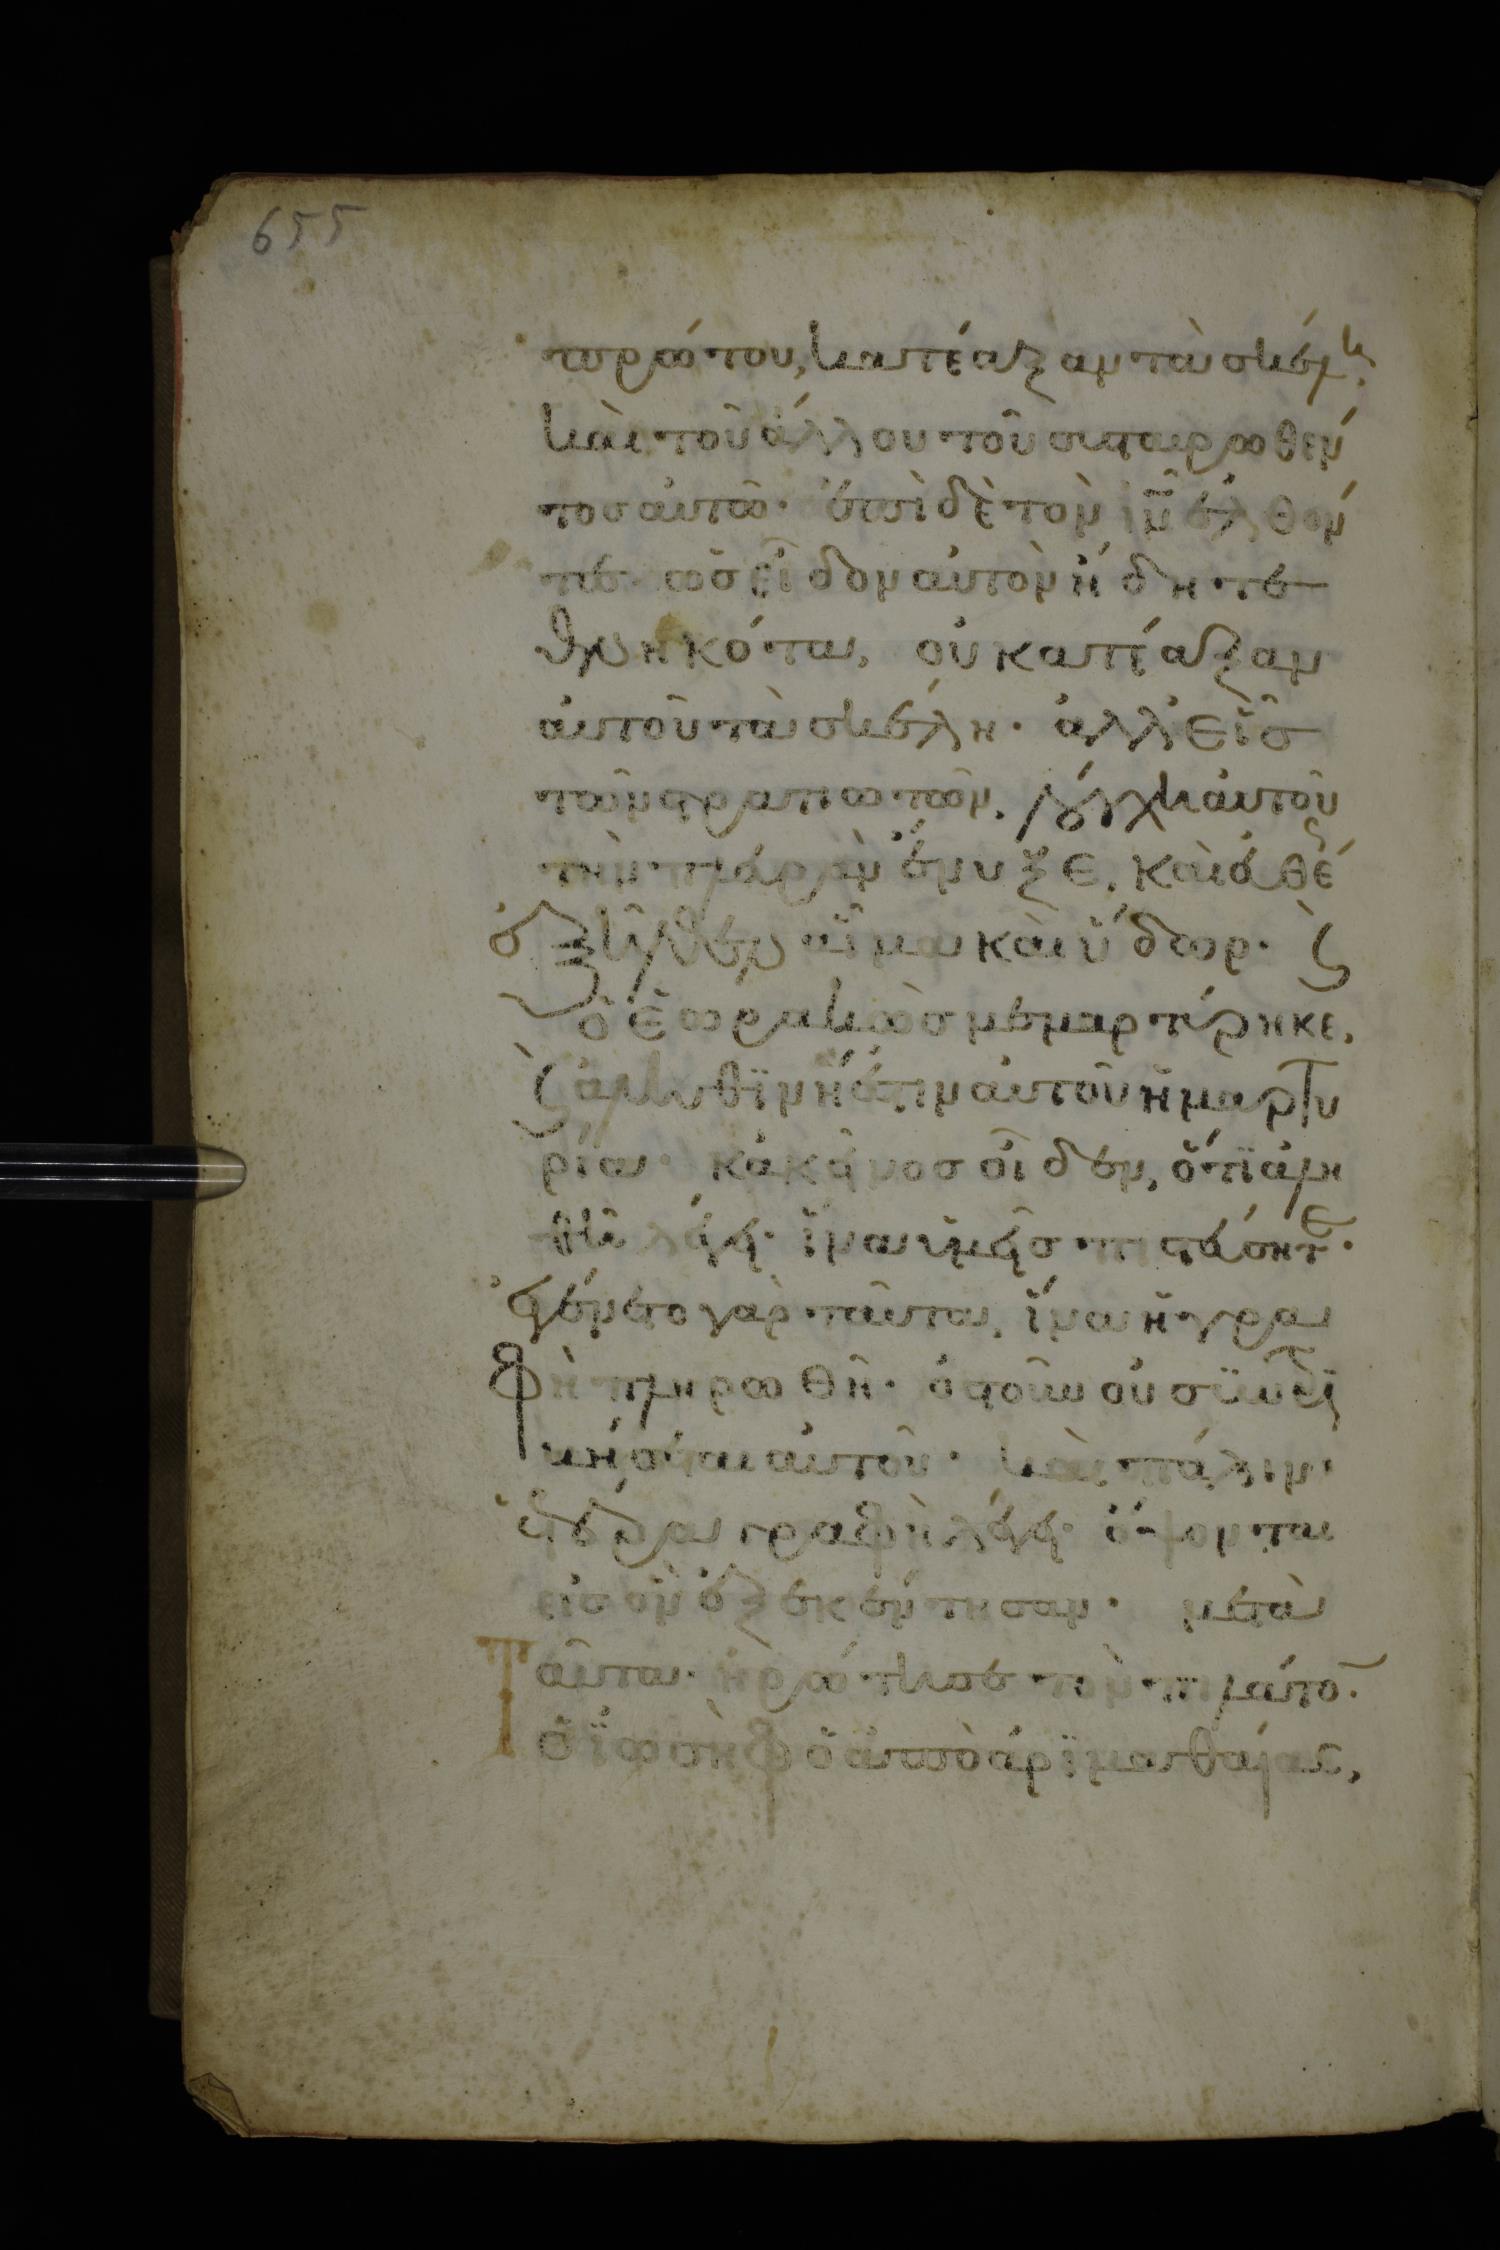 655
πρώτου, κατέαξαν τὰ σκέλη
καὶ τοῦ ἄλλου τοῦ σταυρωθέν
τος αὐτῶ· ἐπὶ δὲ τὸν ἰν̅ ἐλθόν
τες· ὡς εἶδον αὐτὸν ἤδη τε
θνηκότα, οὐ κατέαξαν
αὐτοῦ τὰ σκέλη· ἀλλ' εἷς
τῶν στρατιωτῶν, λόγχη αὐτοῦ
τὴν πλευρὰν ἔνυξε, καὶ εὐθέ
ἐξῆλθεν αἷμα καὶ ὕδωρ· ϗ
ὁ ἑωρακὼς μεμαρτύρηκε,
ϗ ἀληθϊνή ἐστιν αὐτοῦ ἡ μαρτυ
ρία· κἀκεῖνος οἶδεν, ὅτϊ ἀλη
θῆ λέγει· ἵνα ὑμεῖς πιστεύσητε·
ἐγένετο γὰρ ταῦτα, ἵνα ἡ γρα
φὴ πληρωθῆ· ὀστοῦν οὐ συντρϊ
βήσεται αὐτοῦ· καὶ πάλιν·
ἑτέρα γραφὴ λέγει· ὄψονται
εἰς ὃν ἐξεκέντησαν· μετὰ
Ταῦτα· ἠρώτησε τὸν πιλάτον·
ὁ ἰωσὴφ ὁ ἀπὸ ἀρϊμαθαίας,